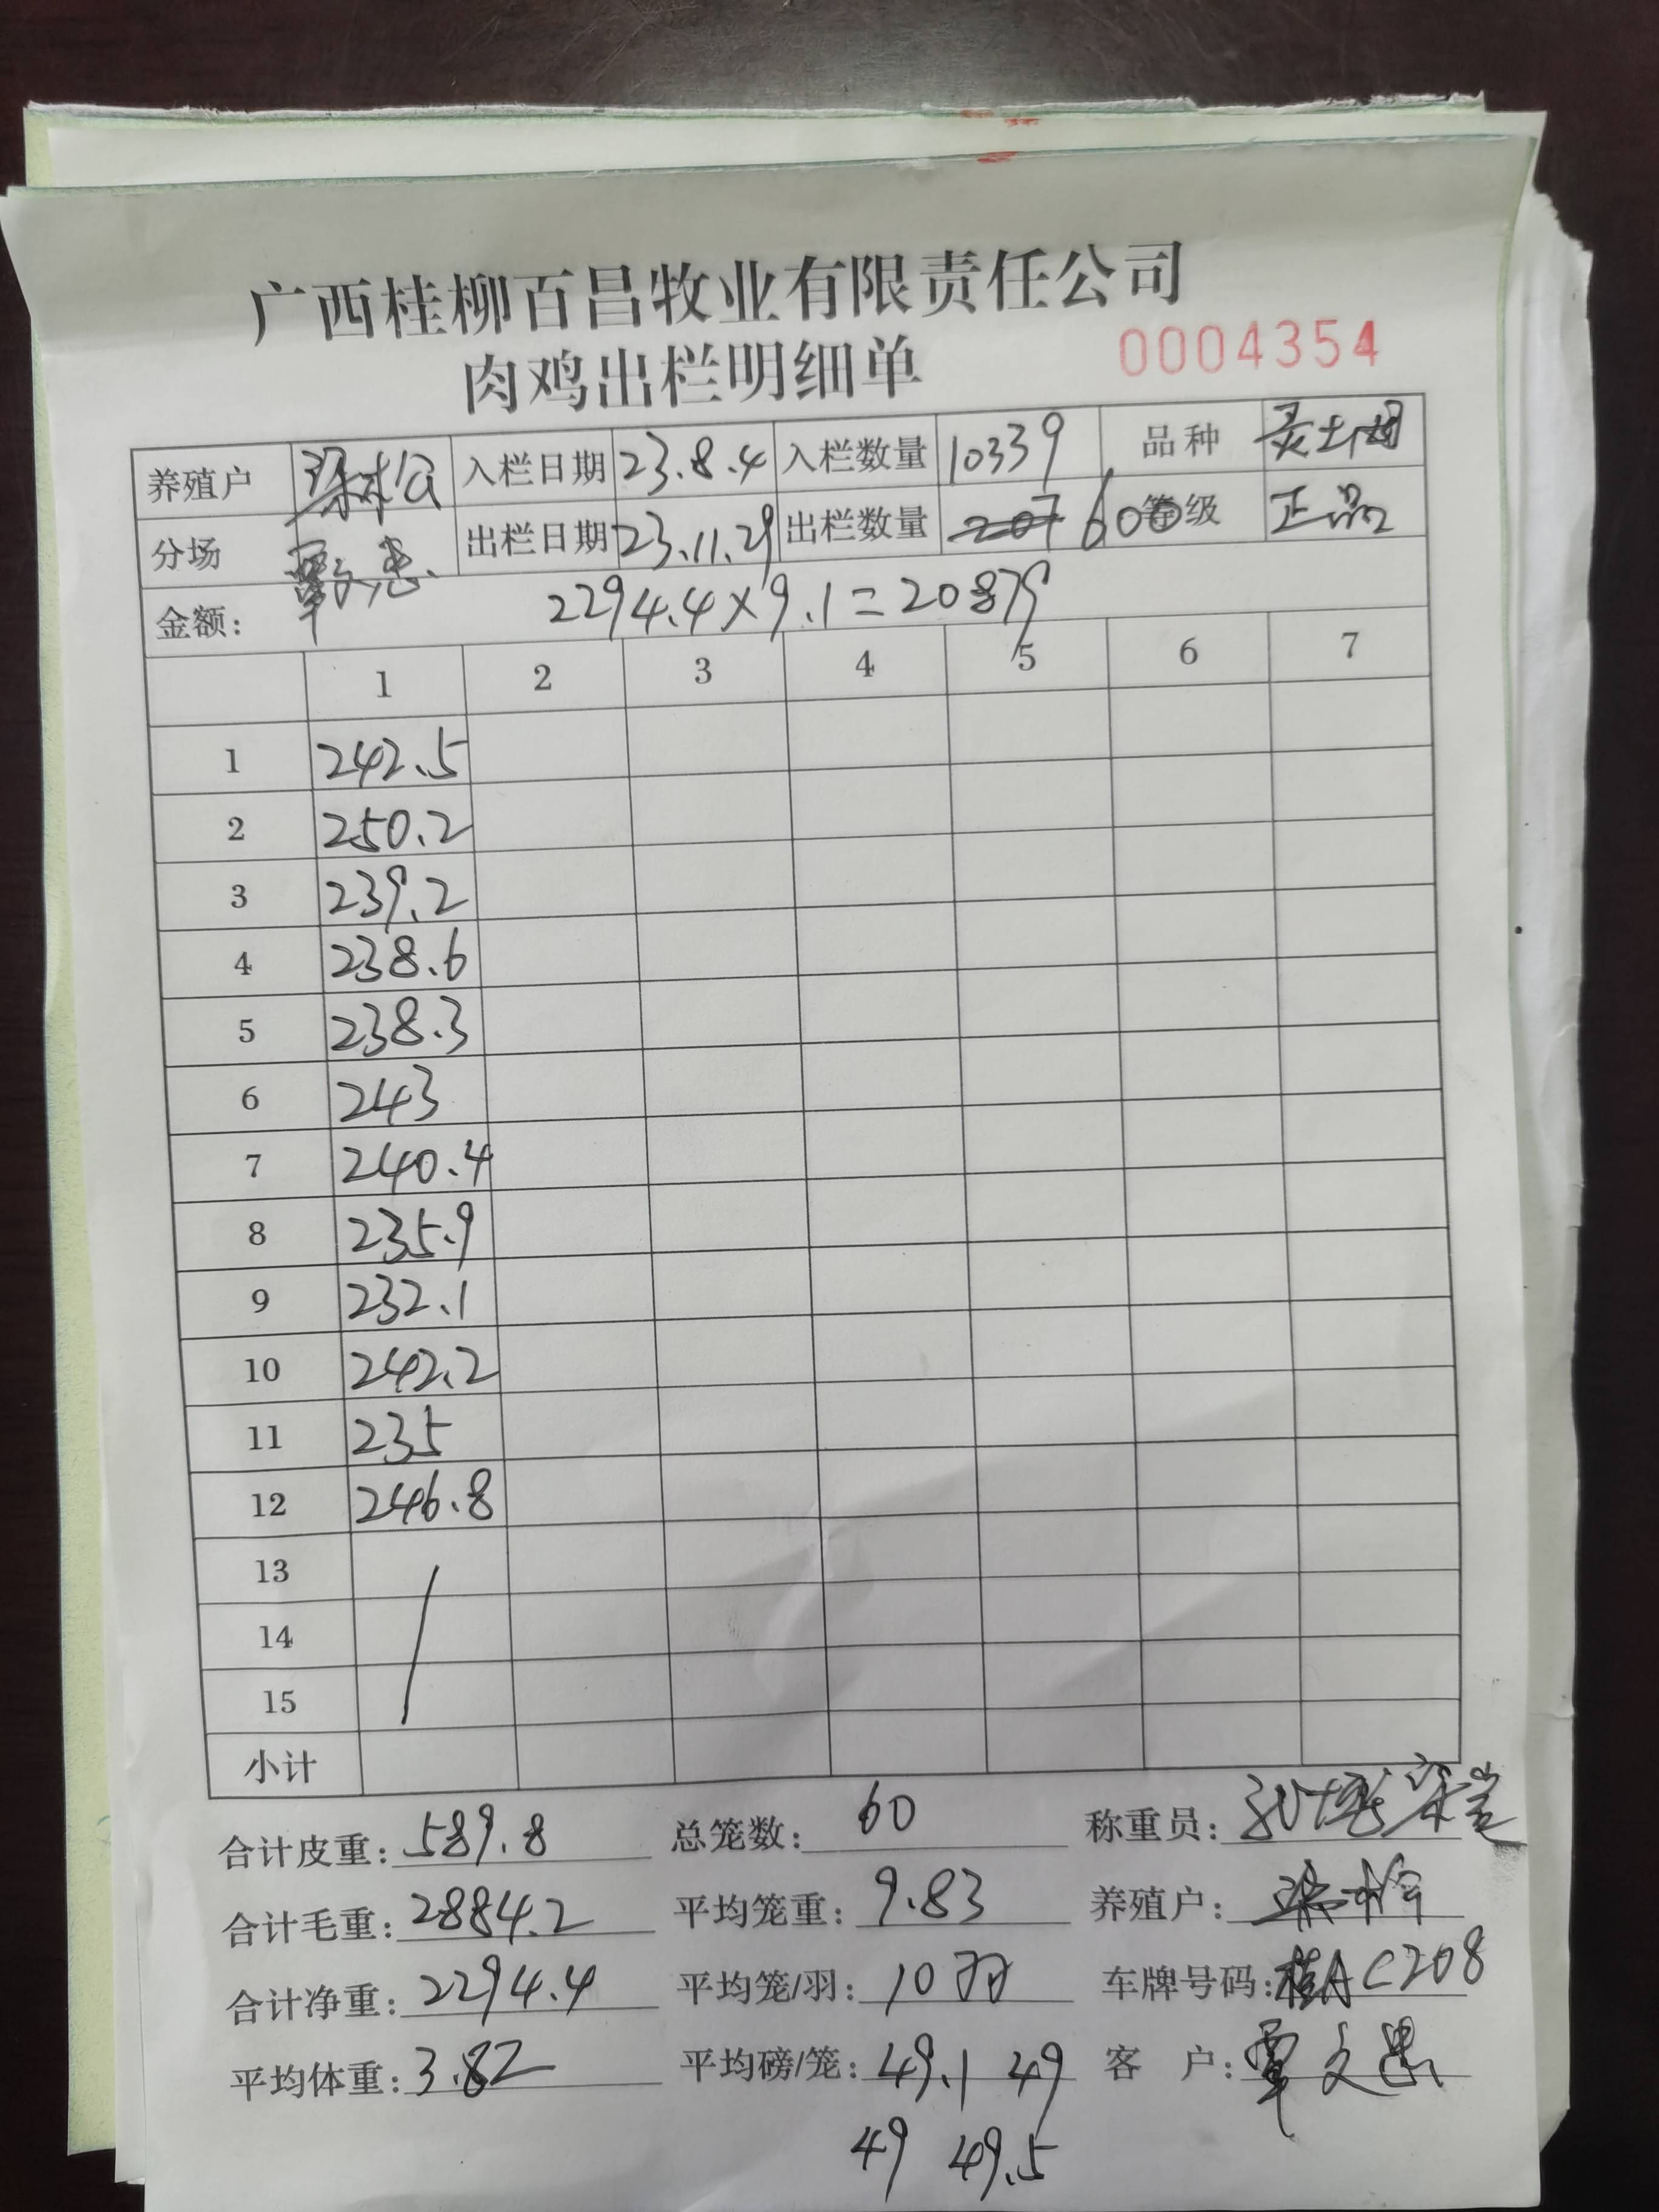 广西桂柳百昌牧业有限责任公司
肉鸡出栏明细单 0004354
养殖户 入栏日期 23.8.4 入栏数量 10339 品种
分场 覃文忠 出栏日期 23.11.29 出栏数量 207 600 等级 正品
金额: 2294.4×9.1=20879
1 2 3 4 5 6 7
1 242.5
2 250.2
3 239.2
4 238.6
5 238.3
6 243
7 240.4
8 235.9
9 232.1
10 242.2
11 235
12 246.8
13
14
15
小计
合计皮重: 589.8 总笼数: 60 称重员:
合计毛重: 2884.2 平均笼重: 9.83 养殖户:
合计净重: 2294.4 平均笼/羽: 10羽 车牌号码: 桂AC208
平均体重: 3.82 平均磅/笼: 49.1 49 客 户: 覃文
49 49.5